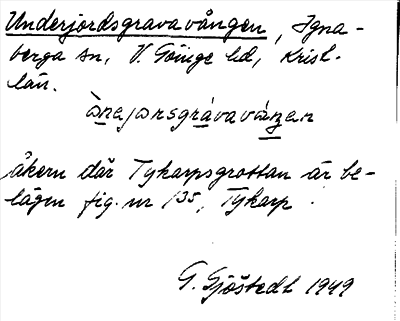 Underjordsgravavången, Igna-
berga sn, V. Göinge hd, Krist.
län.
ànejorsgrávavàŋen
åkern där Tykarpsgrottan är be-
lägen fig. nr 135, Tykarp.
G. Sjöstedt 1949